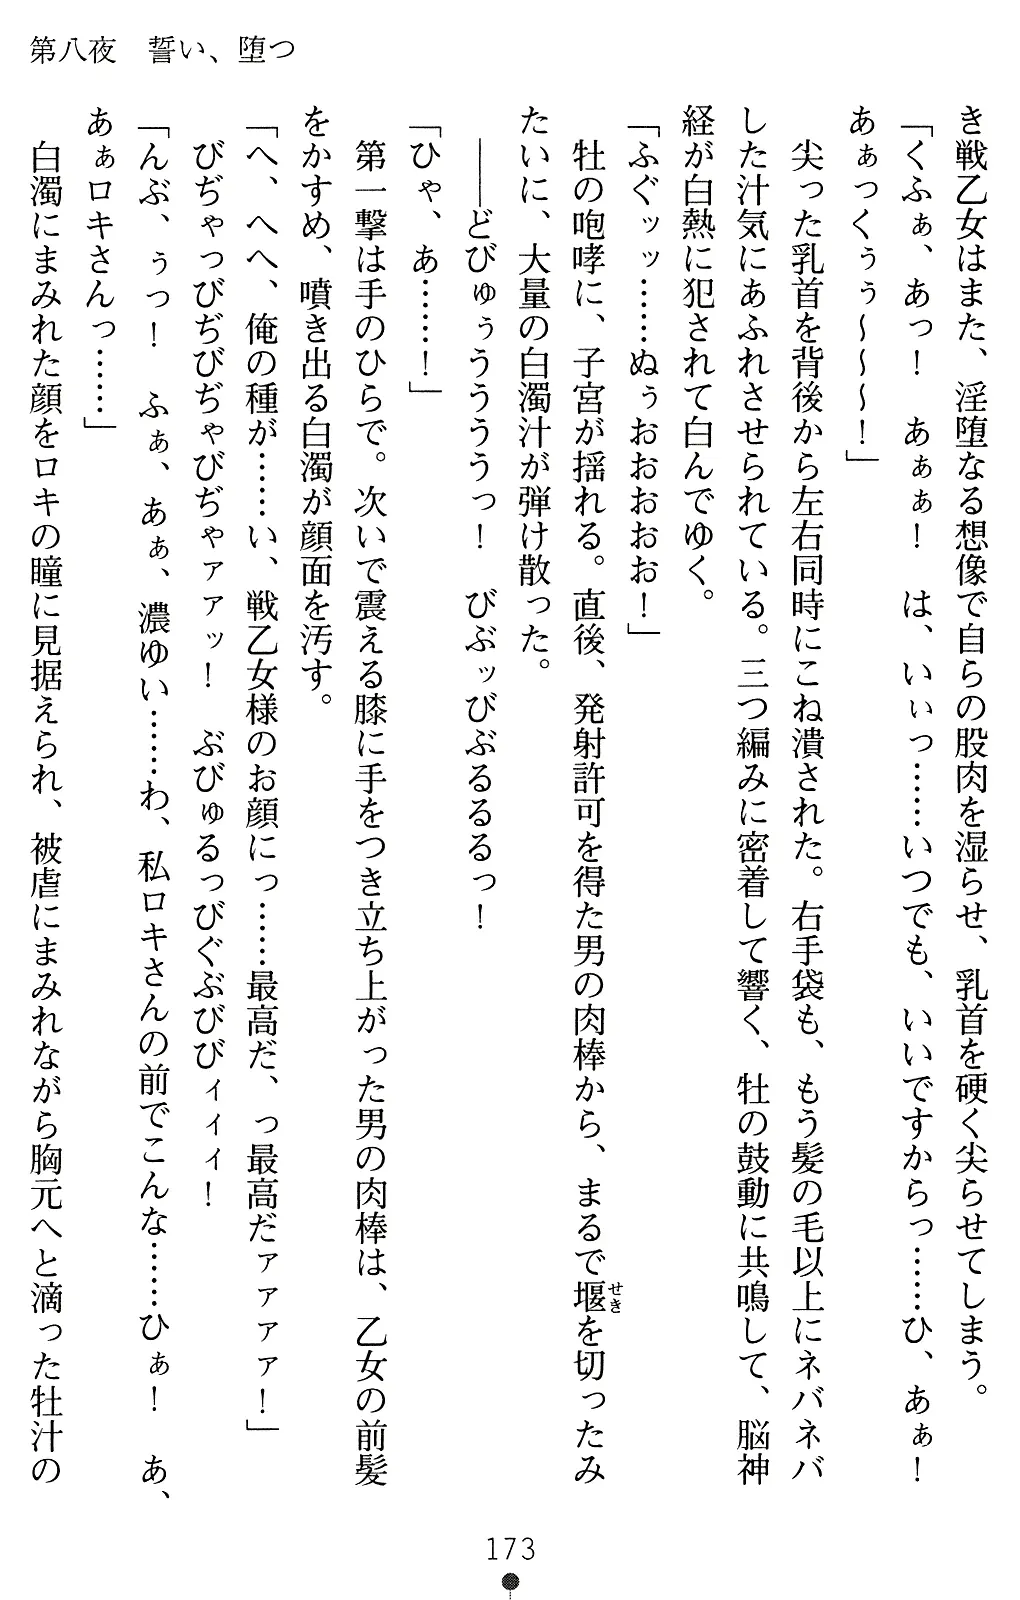 第八夜　誓い、堕つ
き戦乙女はまた、淫堕なる想像で自らの股肉を湿らせ、乳首を硬く尖らせてしまう。
「くふぁ、あっ！　あぁぁ！　は、いぃっ……いつでも、いいですからっ……ひ、あぁ！
あぁっくぅぅ～～～！」
　尖った乳首を背後から左右同時にこね潰された。右手袋も、もう髪の毛以上にネバネバ
した汁気にあふれさせられている。三つ編みに密着して響く、牡の鼓動に共鳴して、脳神
経が白熱に犯されて白んでゆく。
「ふぐッッ……ぬぅおおおおお！」
　牡の咆哮に、子宮が揺れる。直後、発射許可を得た男の肉棒から、まるで堰を切ったみ
せき
たいに、大量の白濁汁が弾け散った。
　――どびゅぅうううっ！　びぶッびぶるるるっ！
「ひゃ、あ……！」
　第一撃は手のひらで。次いで震える膝に手をつき立ち上がった男の肉棒は、乙女の前髪
をかすめ、噴き出る白濁が顔面を汚す。
「へ、へへ、俺の種が……い、戦乙女様のお顔にっ……最高だ、っ最高だァァァァ！」
　びぢゃっびぢびぢゃびぢゃァァッ！　ぶびゅるっびぐぶびびィィィ！
「んぶ、ぅっ！　ふぁ、あぁ、濃ゆい……わ、私ロキさんの前でこんな……ひぁ！　あ、
あぁロキさんっ……」
　白濁にまみれた顔をロキの瞳に見据えられ、被虐にまみれながら胸元へと滴った牡汁の
173